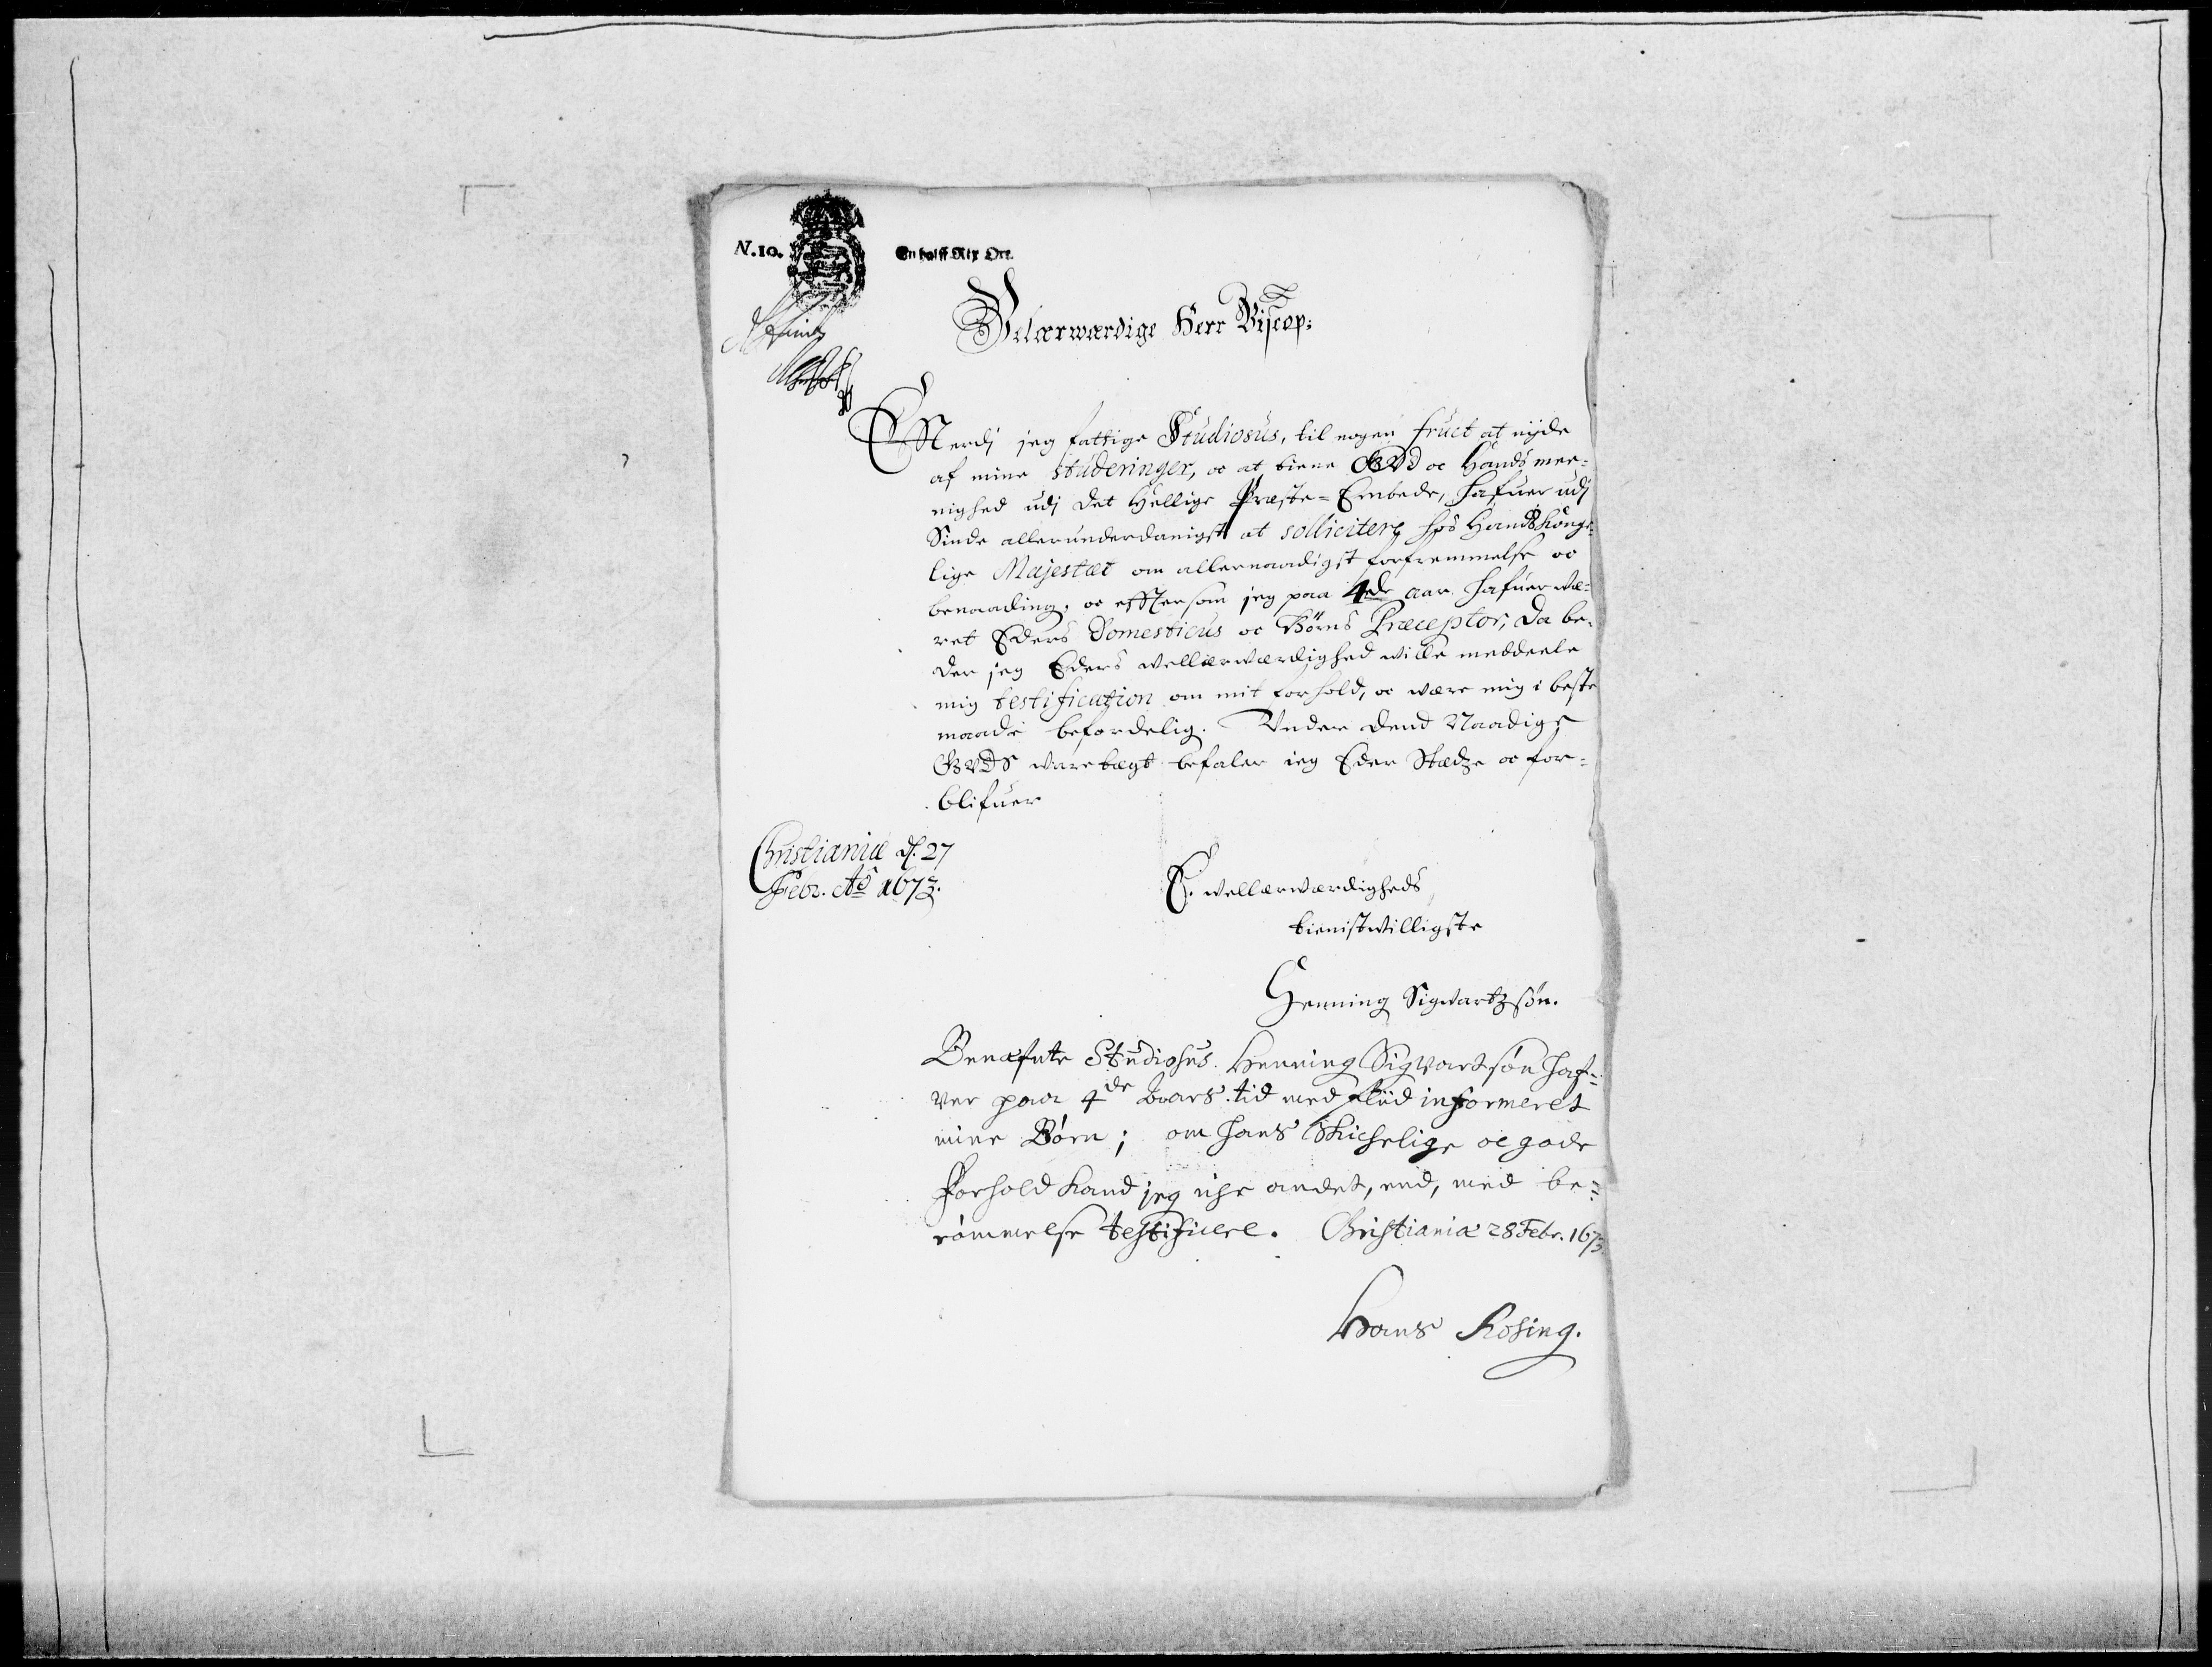 N. 10.
En halff Rix Ort.
Velærwærdige Herr Biscop:
Efterdj jeg fattige Studiosus, til nogen fruct at nyde
af mine studeringer, oc at tiene GVd oc Hands mee-
nighed udj det Hellige Præste-Embede, hafuer udj
Sinde allerunderdanigst at sollicitere hos Hands Konge-
lige Majestæt om allernaadigst forfremmelse oc
benaading, oc efftersom jeg paa 4de aar hafuer væ-
ret Eders Domesticus oc Børns Præceptor, Da be-
der jeg Eders wellærwærdighed wille meddeele
mig testification om mit forhold, oc være mig i beste
maade befordelig. Vnder dend Naadige
GVdS waretægt befaler jeg Eder Stædze oc for-
blifuer
Christianiæ d. 27
Febr. Ao 1673.
E. wellærwærdigheds
tienistwilligste
Henning Sigvartzsøn.
Benæfnte Studiosus Henning Sigvartsøn haf-
ver paa 4de Aars tid med fliid informeret
mine Børn; om hans Skichelige oc gode
forhold kand jeg iche andet, end, med be-
rømmelse testificere. Christianiæ 28 Febr. 1673.
Hans Rosing.